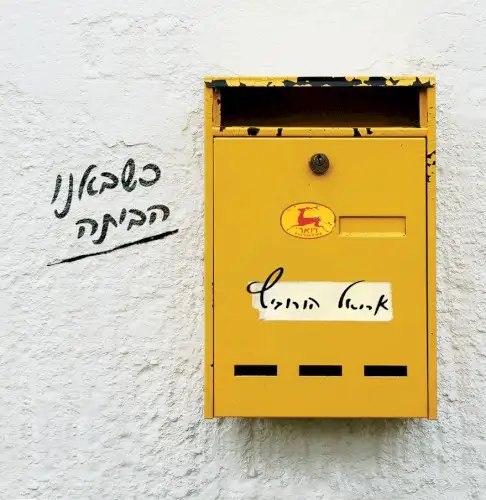 כשבאנו
הביתה
דואר
אריאל הורוביץ